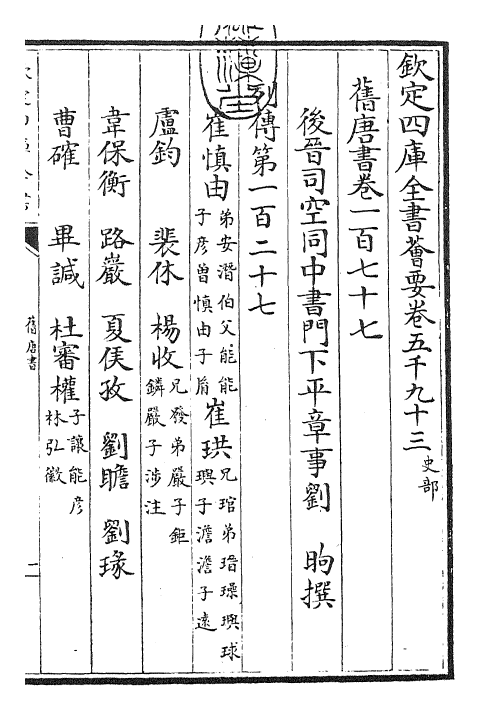 欽定四庫全書薈要卷五千九十三 史部
舊唐書卷一百七十七
後晉司空同中書門下平章事劉 昫撰
列傳第一百二十七
崔慎由 弟安潛伯父能能子彦曾慎由子胤 崔珙 兄琯弟瑨璪璵球璵子澹澹子遠
盧鈞 裴休 楊收 兄發弟嚴子鉅鏻嚴子涉注
韋保衡 路巖 夏侯孜 劉瞻 劉瑑
曹確 畢諴 杜審權 子讓能彦林弘徽
舊唐書